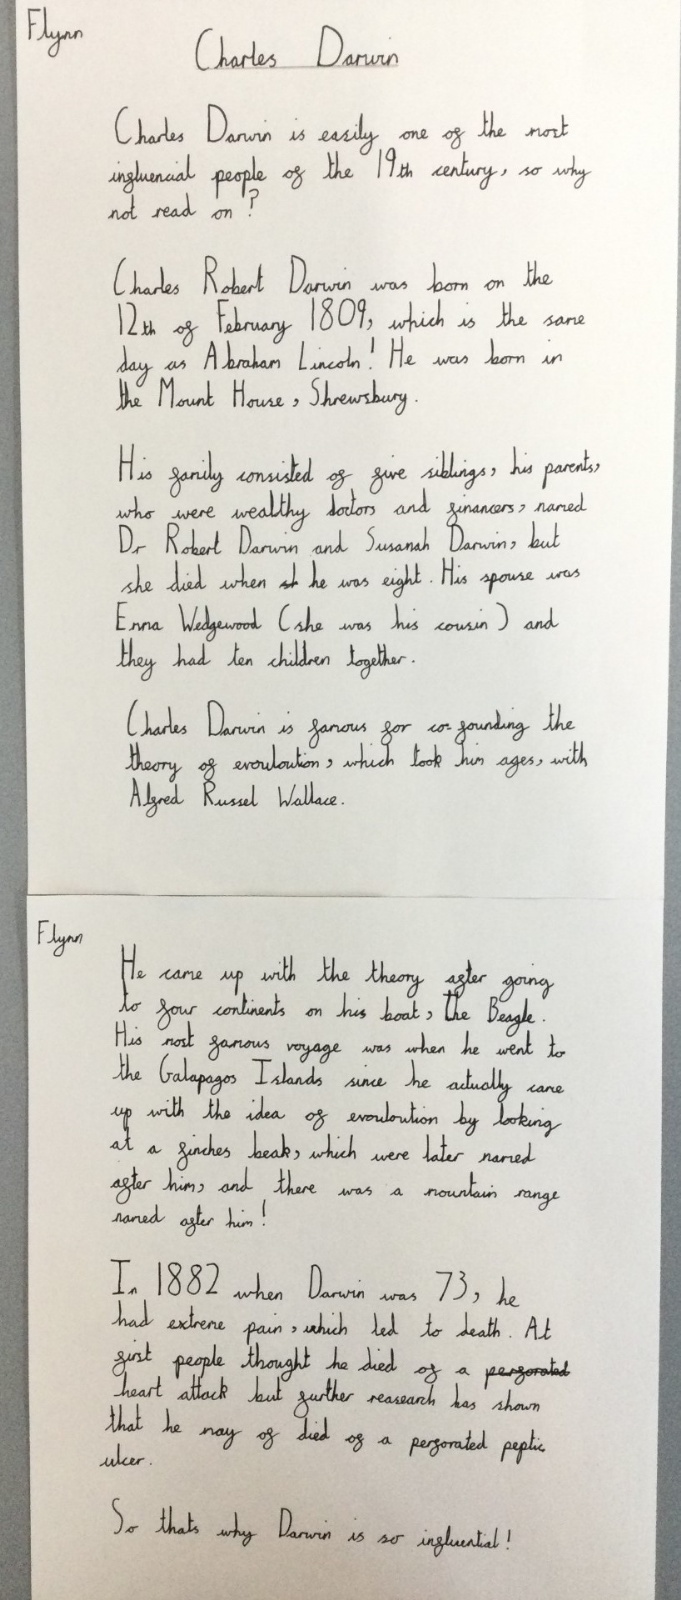 Flynn
Charles Darwin
Charles Darwin is easily one of the most
influencial people of the 19th century, so why
not read on?
Charles Robert Darwin was born on the
12th of February 1809, which is the same
day as Abraham Lincoln! He was born in
the Mount House, Shrewsbury.
His family consisted of five siblings, his parents,
who were wealthy doctors and financers, named
Dr Robert Darwin and Susanah Darwin, but
she died when st he was eight. His spouse was
Emma Wedgewood (she was his cousin) and
they had ten children together.
Charles Darwin is famous for co-founding the
theory of evouloution, which took him ages, with
Alfred Russel Wallace.
Flynn
He came up with the theory after going
to four continents on his boat, the Beagle.
His most famous voyage was when he went to
the Galapagos Islands since he actually came
up with the idea of evouloution by looking
at a finches beak, which were later named
after him, and there was a mountain range
named after him!
In 1882 when Darwin was 73, he
had extreme pain, which led to death. At
first people thought he died of a perforated
heart attack but further reasearch has shown
that he may of died of a perforated peptic
ulcer.
So thats why Darwin is so influential!